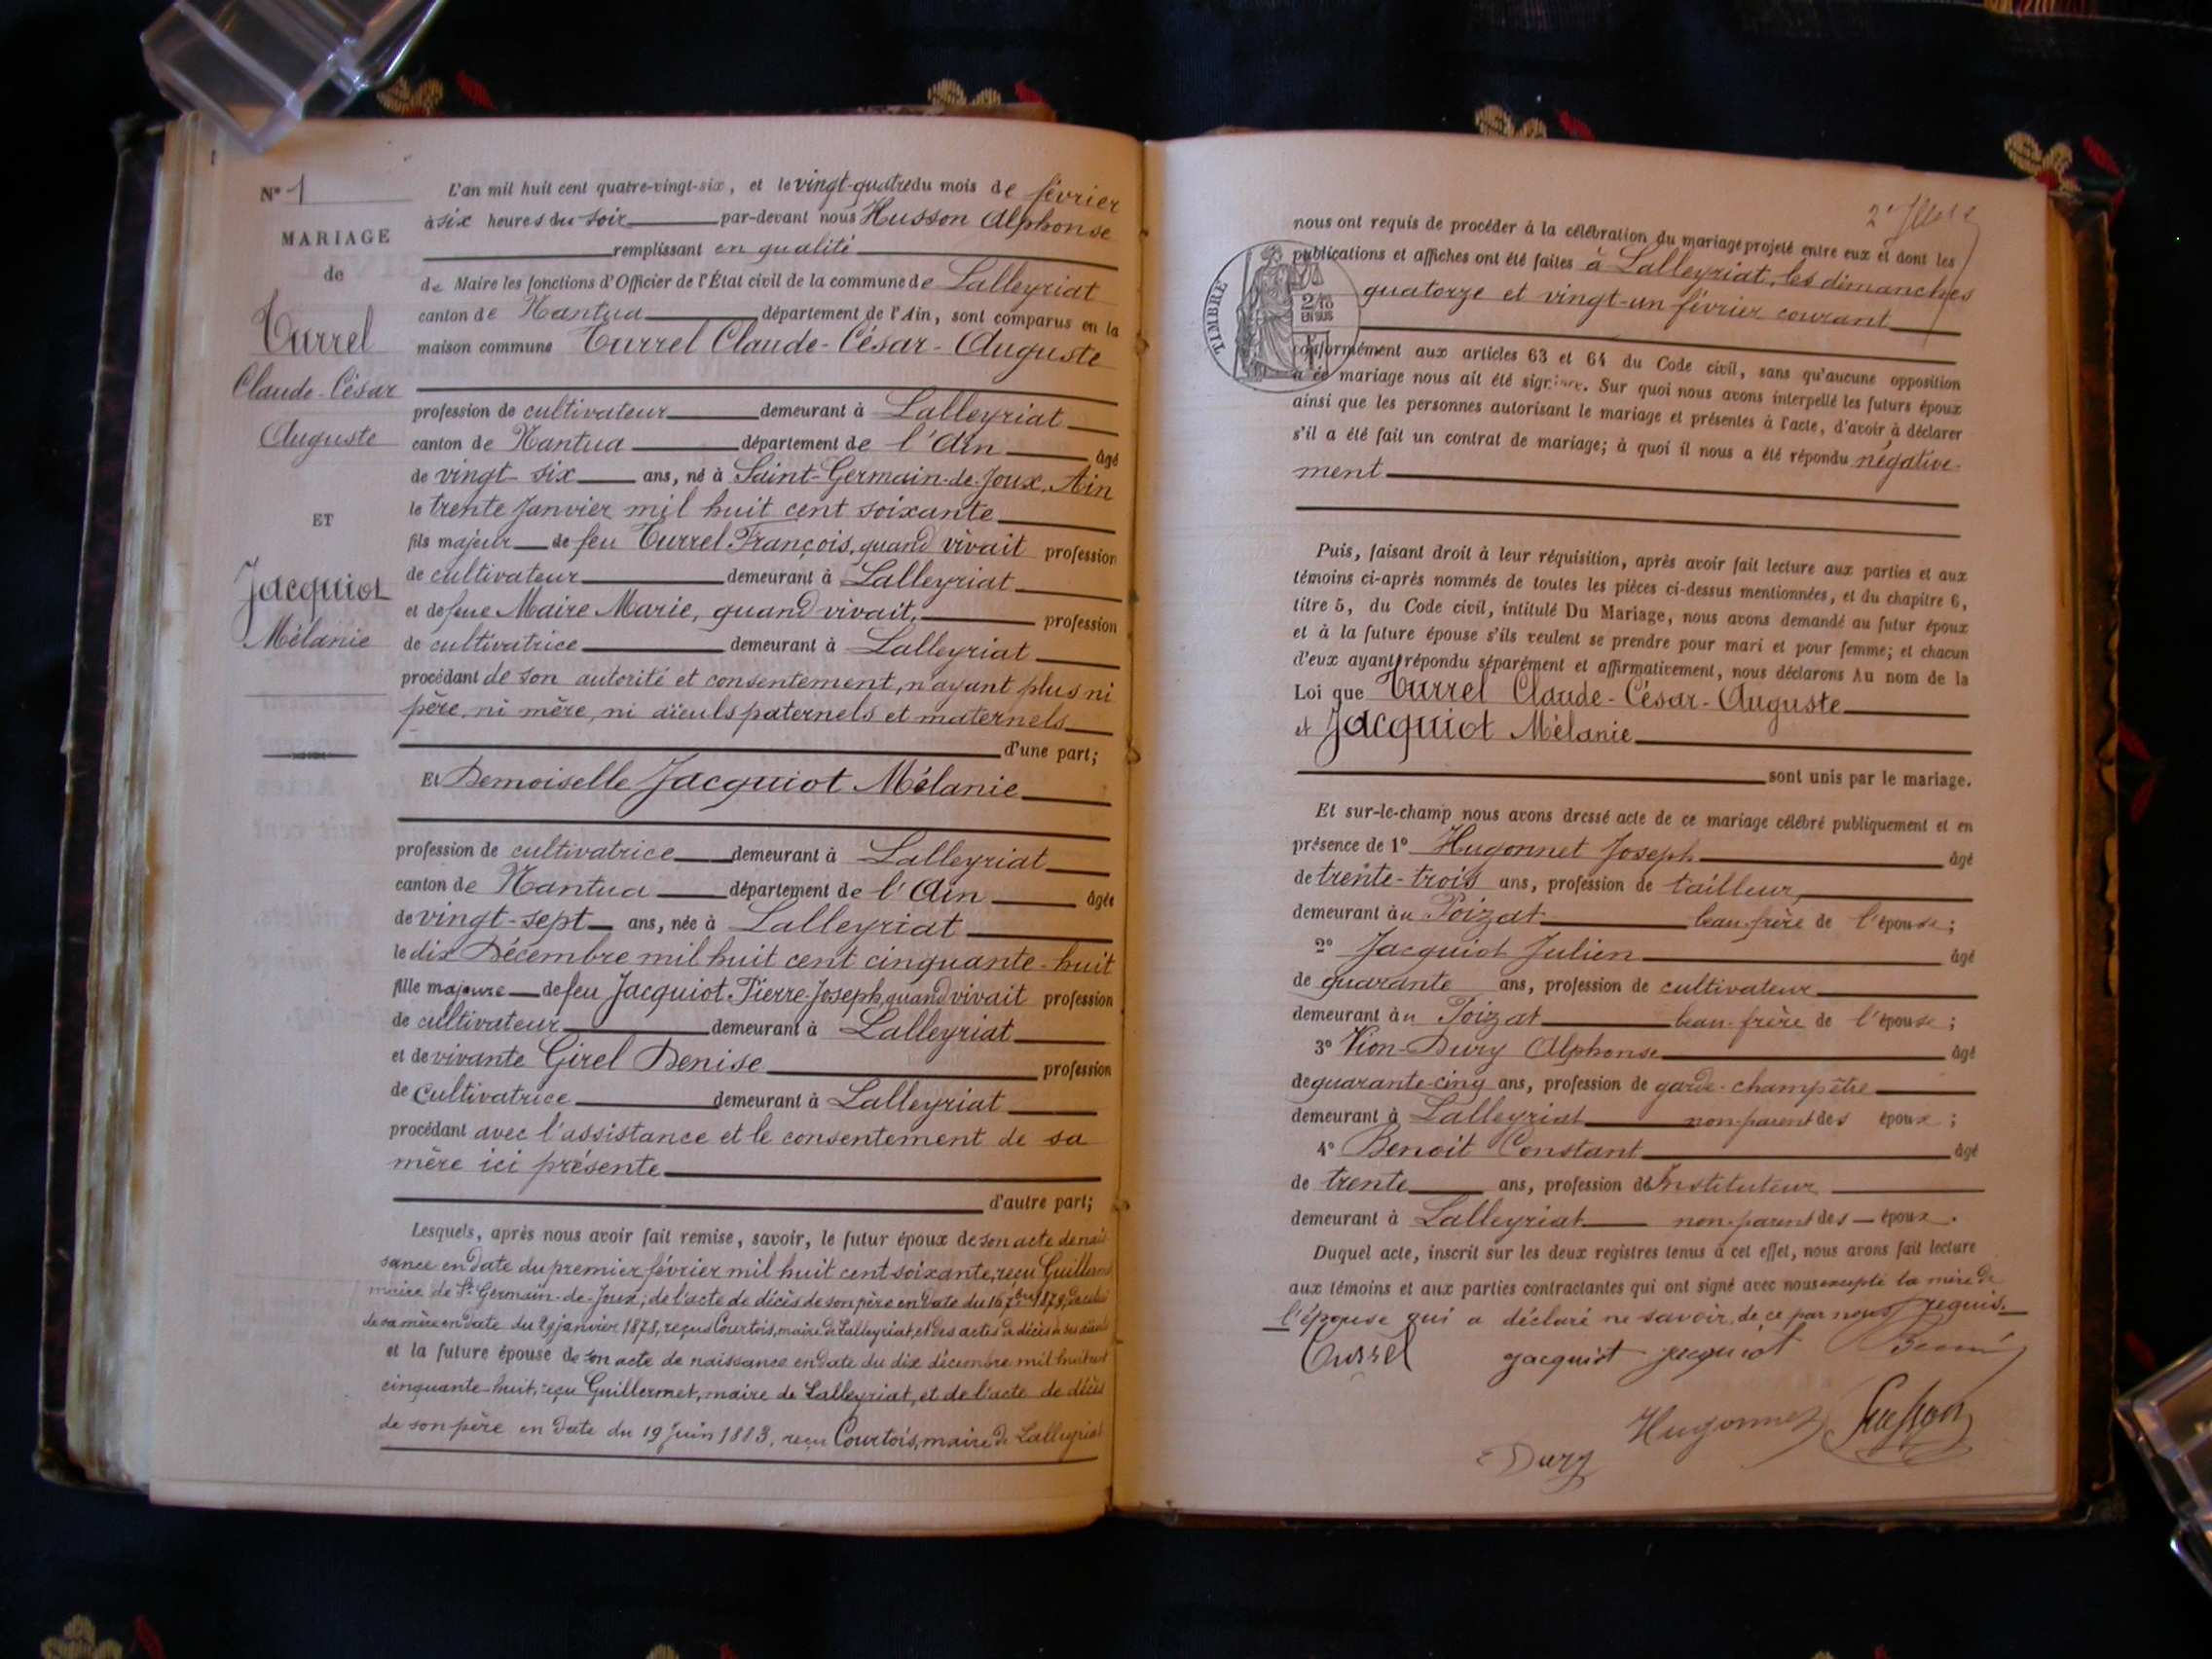 N° 1
MARIAGE
de
Turrel
Claude-César
Auguste
ET
Jacquiot
Mélanie
L'an mil huit cent quatre-vingt-six, et le vingt-quatre du mois de février
à six heures du soir par-devant nous Husson Alphonse
remplissant en qualité
de Maire les fonctions d'Officier de l'État civil de la commune de Lalleyriat
canton de Nantua département de l'Ain, sont comparus en la
maison commune Turrel Claude-César-Auguste
profession de cultivateur demeurant à Lalleyriat
canton de Nantua département de l'Ain âgé
de vingt-six ans, né à Saint-Germain-de-Joux, Ain
le trente Janvier mil huit cent soixante
fils majeur de feu Turrel François, quand vivait profession
de cultivateur demeurant à Lalleyriat
et de feue Maire Marie, quand vivait, profession
de cultivatrice demeurant à Lalleyriat
procédant de son autorité et consentement, n'ayant plus ni
père, ni mère, ni aïeuls paternels et maternels
d'une part;
Et Demoiselle Jacquiot Mélanie
profession de cultivatrice demeurant à Lalleyriat
canton de Nantua département de l'Ain âgée
de vingt-sept ans, née à Lalleyriat
le dix Décembre mil huit cent cinquante-huit
fille majeure de feu Jacquiot Pierre-Joseph, quand vivait profession
de cultivateur demeurant à Lalleyriat
et de vivante Girel Denise profession
de Cultivatrice demeurant à Lalleyriat
procédant avec l'assistance et le consentement de sa
mère ici présente
d'autre part;
Lesquels, après nous avoir fait remise, savoir, le futur époux de son acte de nais
sance en date du premier février mil huit cent soixante, reçu Guillermet
maire de St Germain-de-Joux; de l'acte de décès de son père en date du 16 7bre 1879, de celui
de sa mère en date du 29 janvier 1878, reçus Courtois, maire de Lalleyriat, et des actes de décès de ses aïeuls
et la future épouse de son acte de naissance en date du dix décembre mil huit cent
cinquante-huit, reçu Guillermet, maire de Lalleyriat, et de l'acte de décès
de son père en date du 19 juin 1883, reçu Courtois, maire de Lalleyriat
nous ont requis de procéder à la célébration du mariage projeté entre eux et dont les
publications et affiches ont été faites à Lalleyriat, les dimanches
quatorze et vingt-un février courant
TIMBRE
2/10
EN SUS
conformément aux articles 63 et 64 du Code civil, sans qu'aucune opposition
à ce mariage nous ait été signifiée. Sur quoi nous avons interpellé les futurs époux
ainsi que les personnes autorisant le mariage et présentes à l'acte, d'avoir à déclarer
s'il a été fait un contrat de mariage; à quoi il nous a été répondu négative-
ment
Puis, faisant droit à leur réquisition, après avoir fait lecture aux parties et aux
témoins ci-après nommés de toutes les pièces ci-dessus mentionnées, et du chapitre 6,
titre 5, du Code civil, intitulé Du Mariage, nous avons demandé au futur époux
et à la future épouse s'ils veulent se prendre pour mari et pour femme; et chacun
d'eux ayant répondu séparément et affirmativement, nous déclarons Au nom de la
Loi que Turrel Claude-César-Auguste
et Jacquiot Mélanie
sont unis par le mariage.
Et sur-le-champ nous avons dressé acte de ce mariage célébré publiquement et en
présence de 1° Hugonnet Joseph âgé
de trente-trois ans, profession de tailleur,
demeurant au Poizat beau-frère de l'épouse;
2° Jacquiot Julien âgé
de quarante ans, profession de cultivateur
demeurant au Poizat beau-frère de l'épouse;
3° Vion-Dury Alphonse âgé
de quarante-cinq ans, profession de garde-champêtre
demeurant à Lalleyriat non-parent des époux;
4° Benoit Constant âgé
de trente ans, profession d'Instituteur
demeurant à Lalleyriat non-parent des époux.
Duquel acte, inscrit sur les deux registres tenus à cet effet, nous avons fait lecture
aux témoins et aux parties contractantes qui ont signé avec nous excepté la mère de
l'épouse qui a déclaré ne savoir, de ce par nous requis.
Turrel jacquiot jacquiot Benoit
Hugonnet Husson
Dury